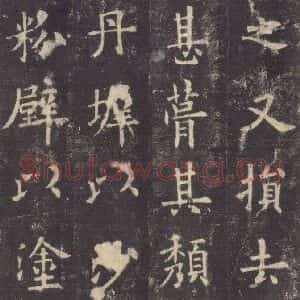 之又損去
甚葺其頹
丹墀以沙
粉壁以塗
Shufawang.Cn